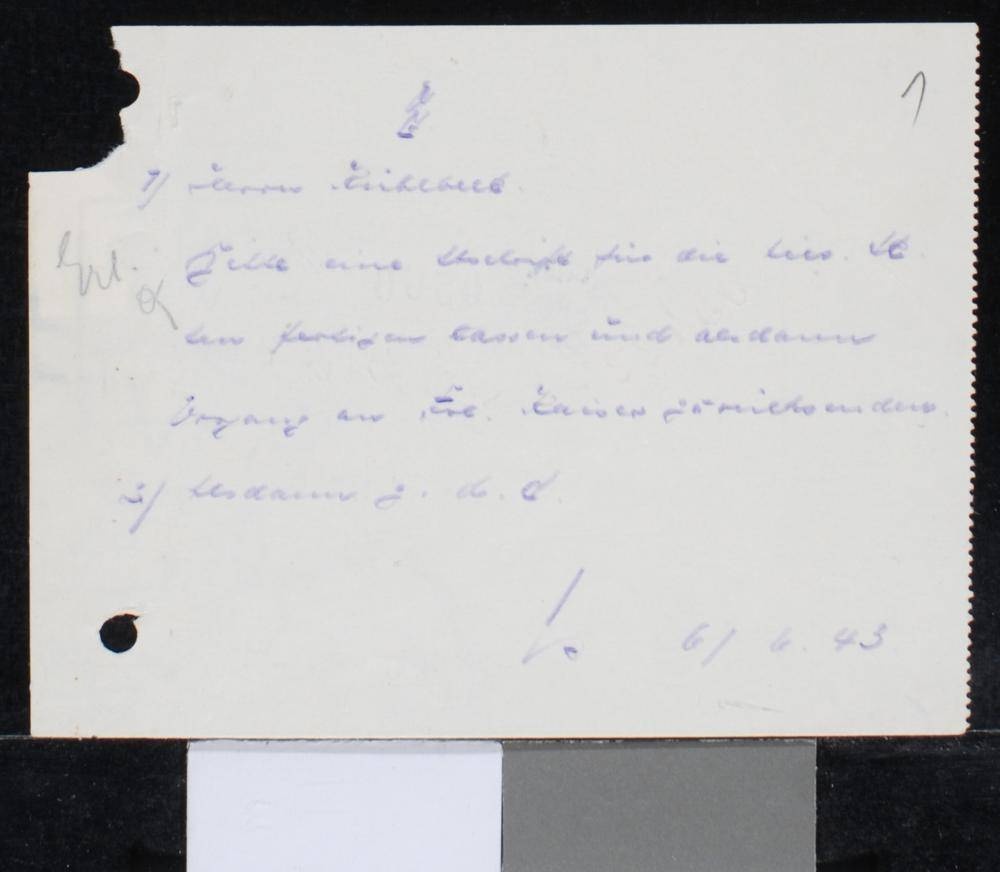 1
1) Herrn
Bitte eine Abschrift für die hies. Ak
ten fertigen lassen und alsdann
Vorgang an Frl. Kaiser zurücksenden.
Erl.
2) Alsdann z. d. A.
6/ 6. 43